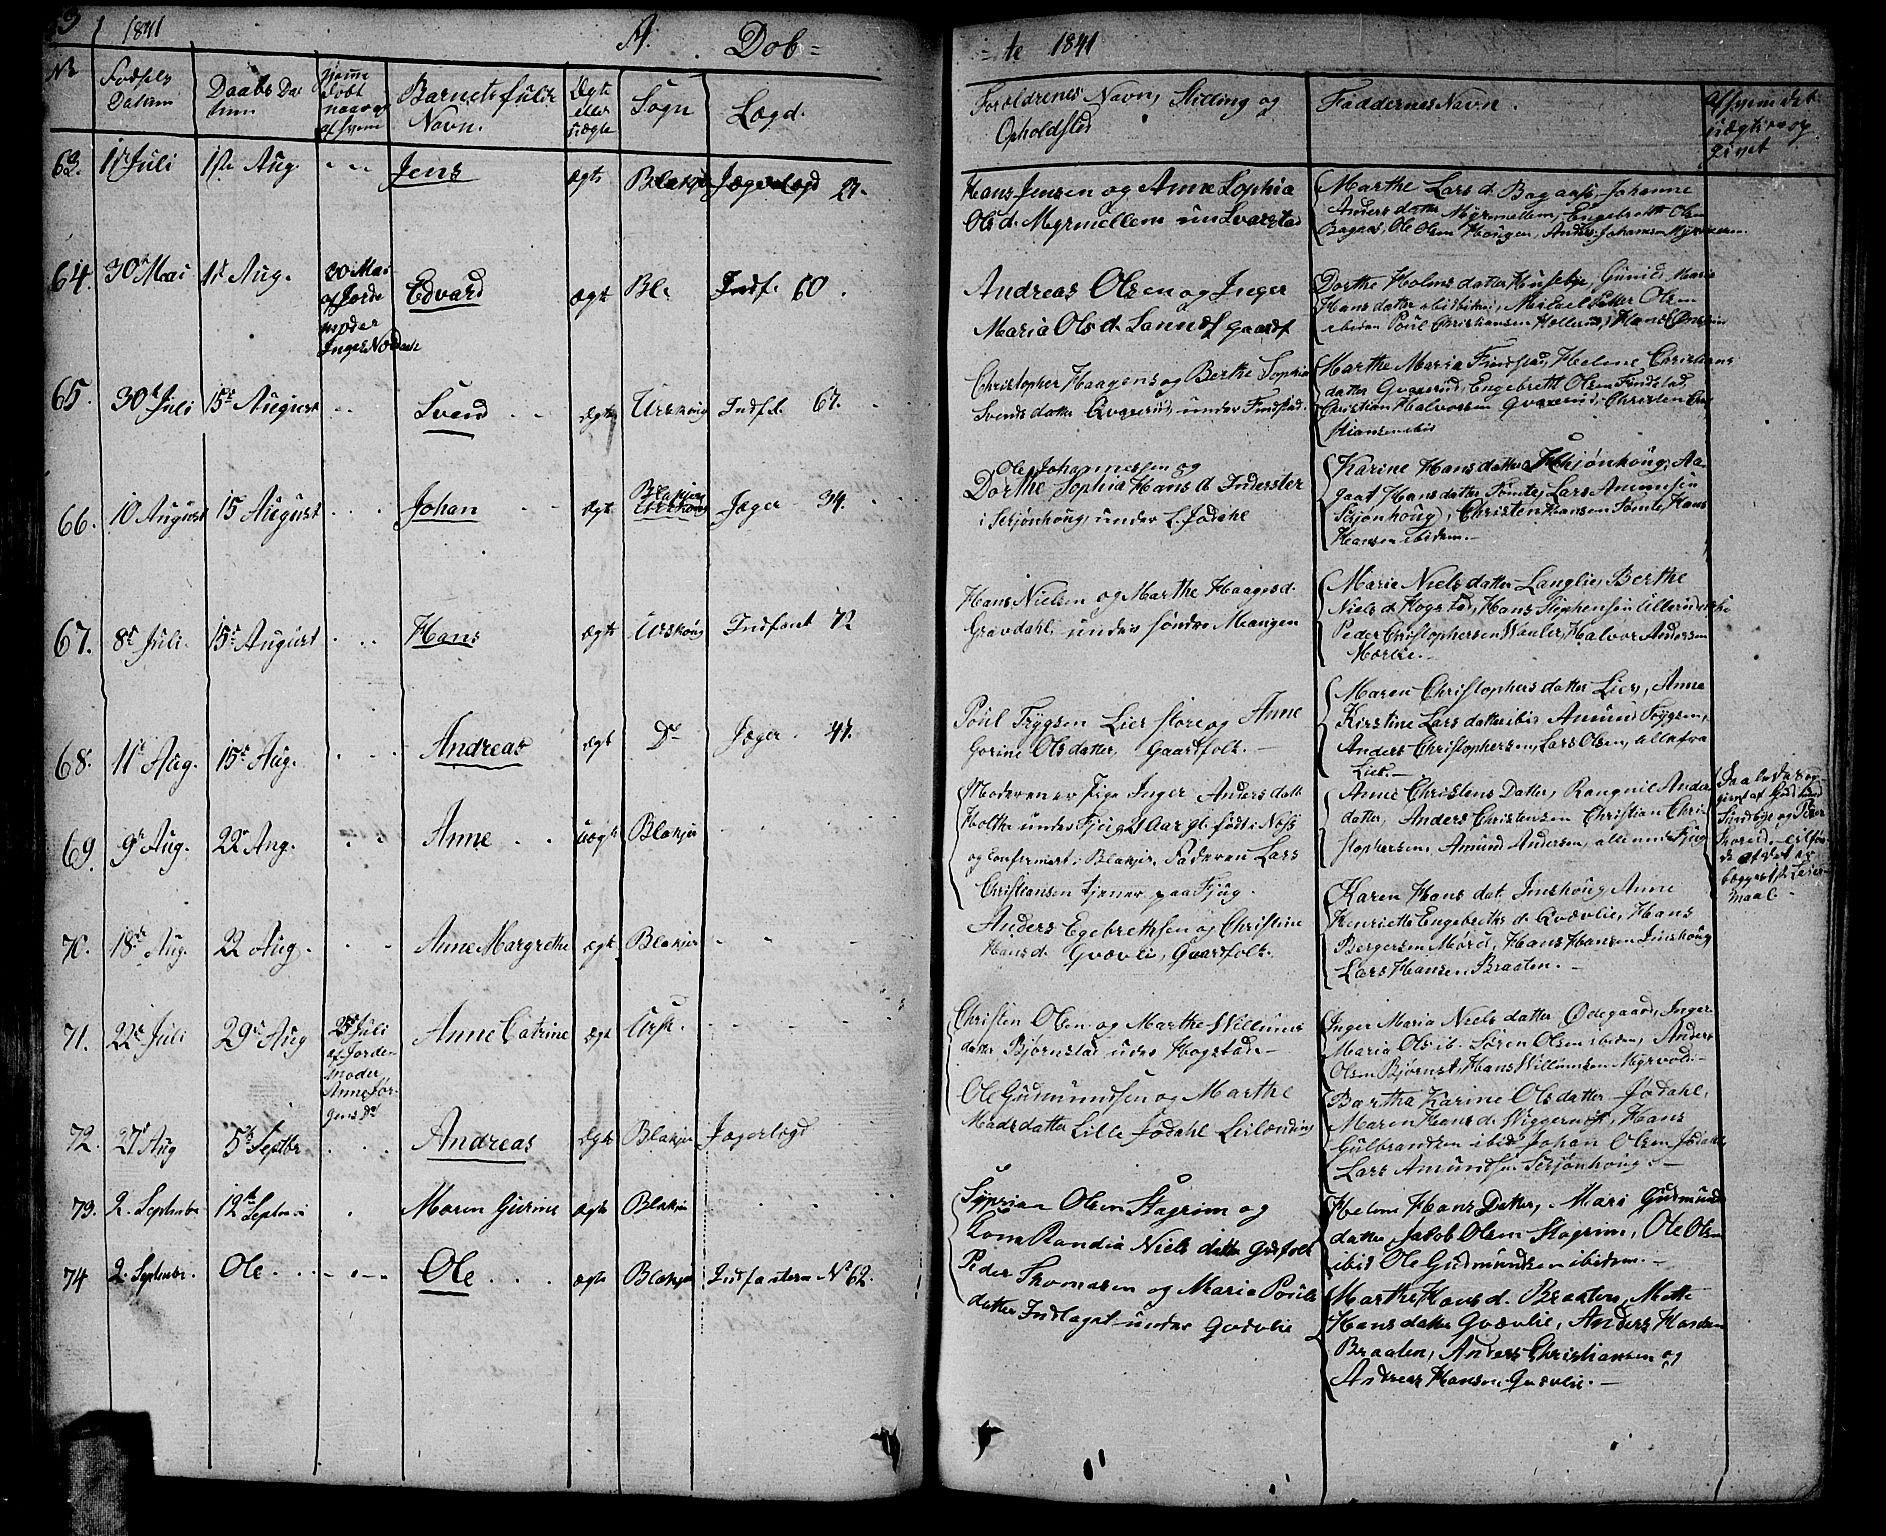 1841 A. Dob= =te 1841
No
Fødsels Datum
Daabs Datum
Hjemme døbt naar og af hvem
Barnets fulde Navn.
Ægte eller uægte
Sogn
Lægd.
Foreldrenes Navn, Stilling og
Opholdsted
Faddernes Navn.
63. 1ste Juli 1ste Aug - - Jens ægte Blakjer Jægerlægd 21.
Hans Jensen og Anne Sophia
Ols d. Myrmellem un Svarstad
Marthe Lars d. Bagaas, Johanne
Anders datter Myrmellem, Engebreth Olsen
Bagaas, Ole Olsen Haugen, Anders Johannsen
64. 30te Mai 1st Aug.
30 Mai
af Jorde
moder
Inger
Edvard ægte Bl. Indf. 60.
Andreas Olsen og Inger
Maria Ols d.
Dorthe Holms datter Husebye, Gunild Marie
Hans datter ibid, Olsen
ibidem Poul Christiansen
65. 30te Juli 15de August - - Svend - - ægte Urskoug Indf. 67.
Christopher Haagens og Berthe Sophia
Svends datter Qvarerud, under Finstad.
Marthe Maria Findstad, Helene Christians
datter Qvarerud, Engebreth Olsen Findstad,
Christian Halvorsen Qvarerud, Christen Chri
stiansen ibid
66. 10 August 15 August - - - Johan - - ægte Blakjer Jæger 34.
Ole Johannessen og
Dorthe Sophia Hans d. Inderster
i Skjønhoug, under L. Jødahl
Karine Hans datter Skjønhoug, Aa-
gaat Hans datter Tomte, Lars Amundsen
Skjønhoug, Christen Hansen Tomte, Hans
Hansen ibidem.-
67. 8de Juli. 15de August - - Hans ægte Urskoug Infant 72
Hans Nielsen og Marthe Haagens d.
Gravdahl, under søndre Mangen
Marie Niels datter Langlie, Berthe
Niels d. Hogstad, Hans Stephensen
Peder Christophersen Waaler, Halvor Andersen
68. 11te Aug. 15de Aug. - - Andreas ægt Do Jæger. 41.
Poul Trygsen Lier store og Anne
Gorine Olsdatter, Gaardfolk.-
Maren Christophers datter Lier, Anne
Kirstine Lars datter ibid Amund Trygsen,
Anders Christophersen, Lars Olsen, alle fra
Lier.-
69. 9de Aug. 22de Aug. Anne - - uægte Blakjer
Moderen er Pige Inger Anders datt
Holthe under Fjug 21 Aar gl. født i Næss
og Confirmert i Blakjer. Faderen Lars
Christiansen tjener paa Fjug.
Anne Christens Datter, Rangnil Anders
datter, Anders Christensen Christian Chri-
stophersen, Amund Andersen, alle under Fjug
70. 18de Aug. 22 Aug. - - Anne Margrethe ægt Blakjer - - -
Anders Egebrethsen og Christine
Hans d. Qvævli, Gaardfolk.
Karen Hans dat. Jonshoug Anne
Henriette Engebreths d. Qvævlie, Hans
Bergersen Mørd, Hans Hansen Jonshoug
Lars Hansen Braaten.-
71. 22de Juli 29de Aug
25 Juli
af Jorde
moder
Anne Jør-
gens Dr
Anne Catrine ægt Ursk. - - -
Christen Olsen og Marthe Willums
datter Bjørnstad under Hogstad-
Inger Maria Niels datter Ødegaard, Inger
Maria Ols ib. Søren Olsen ibidem, Anders
Olsen Bjørnst, Hans Willumsen Myrvold-
72. 27de Aug 5te Septbr - - - Andreas ægte Blakjer Jægerlægd
Ole Gudmundsen og Marthe
Mads datter Lille Jødahl Leilænding
Bertha Karine Olsdatter Jødahl,
Maren Hans d. Wiggernæs, Hans
Gulbrandsen ibid Johan Olsen Jødahl
Lars Amundsen Skjønhoug.-
73. 2. September 12te Septem - Maren Gurine ægte Blakjer - -
Syprian Olsen Skogrim og
Kona Randia Niels datter Gaardfolk
Helene Hans Datter, Mari Gudmunds
datter Jakob Olsen Skogrim, Ole Olsen
ibid Ole Gudmundsen ibidem.-
74 2 Septembr. Ole - - - Ole - - - ægte Blakjer Infanteri No 62.
Peder Thomasen og Maria Pouls
datter Indlaget under Qvævlie
Marthe Hans d. Braaten, Mette
Hans datter Qvævlie, Anders Hansen
Braaten, Anders Christiansen og
Andreas Hansen Qvævlie.-